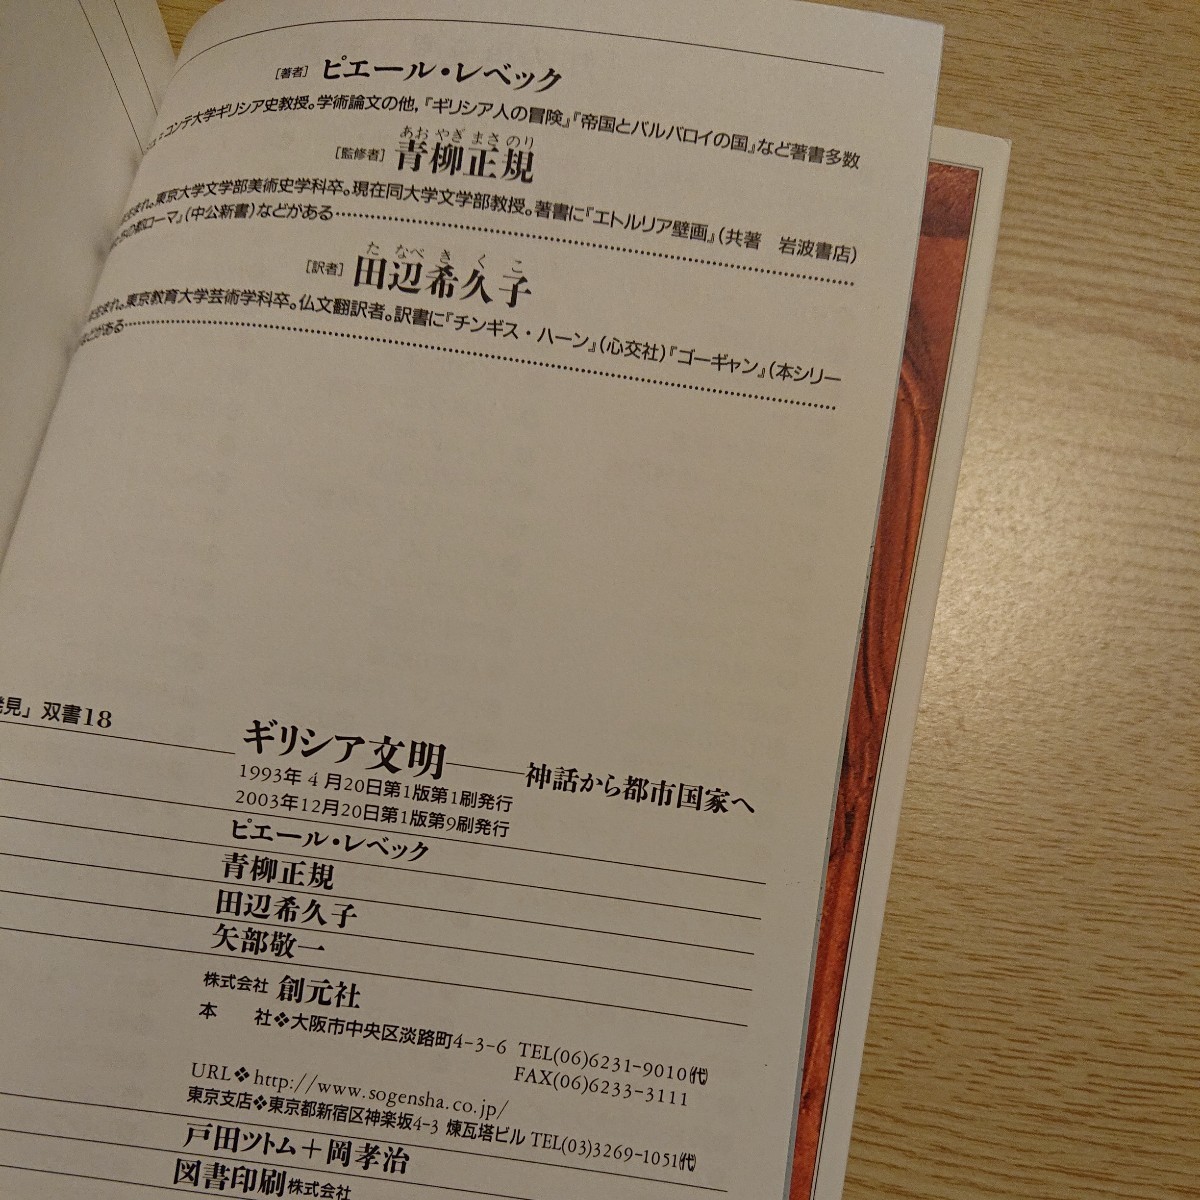 ［著者］ ピエール・レベック
コンテ大学ギリシア史教授。学術論文の他，『ギリシア人の冒険』『帝国とバルバロイの国』など著書多数
あお やぎ まさ のり
［監修者］ 青柳正規
生まれ。東京大学文学部美術史学科卒。現在同大学文学部教授。著書に『エトルリア壁画』（共著　岩波書店）
の都ローマ』（中公新書）などがある
た なべ き く こ
［訳者］ 田辺希久子
生まれ。東京教育大学芸術学科卒。仏文翻訳者。訳書に『チンギス・ハーン』（心交社）『ゴーギャン』（本シリー
などがある
発見」双書18
ギリシア文明——神話から都市国家へ
1993年 4 月20日第1版第1刷発行
2003年12月20日第1版第9刷発行
ピエール・レベック
青柳正規
田辺希久子
矢部敬一
株式会社 創元社
本　社❖大阪市中央区淡路町4-3-6 TEL(06)6231-9010㈹
FAX(06)6233-3111
URL❖http://www.sogensha.co.jp/
東京支店❖東京都新宿区神楽坂4-3 煉瓦塔ビル TEL(03)3269-1051㈹
戸田ツトム＋岡孝治
図書印刷株式会社